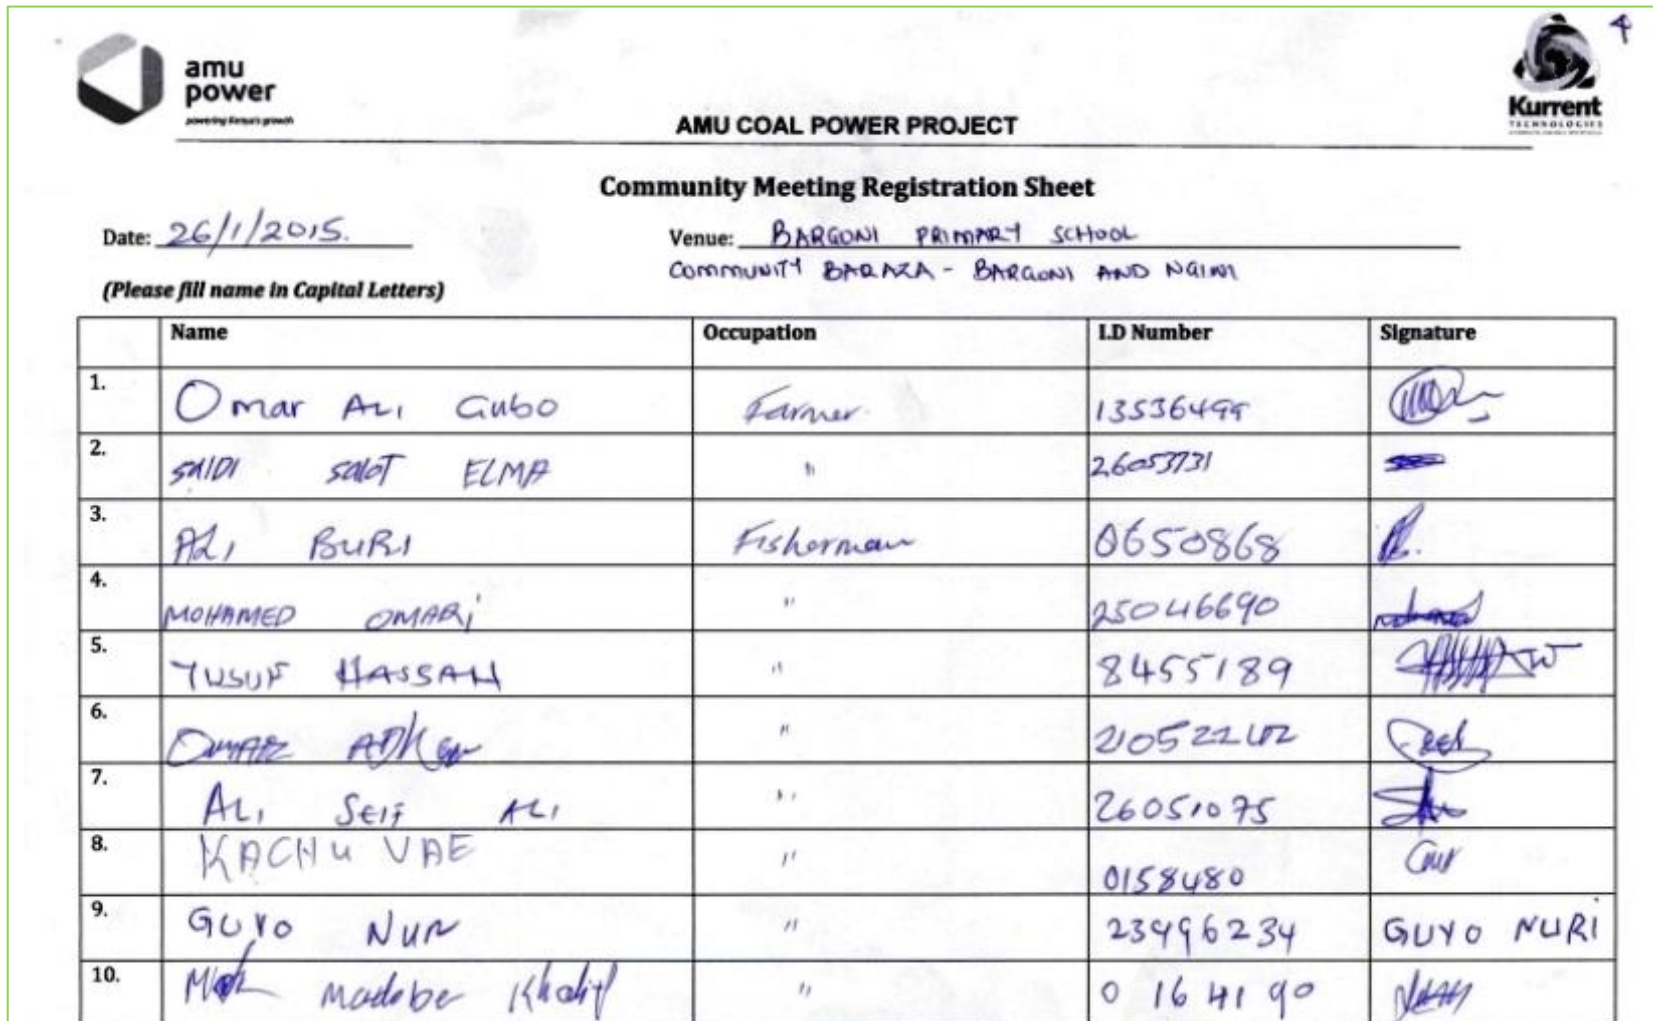 4
amu
power
powering Kenya's growth
Kurrent
TECHNOLOGIES
AMU COAL POWER PROJECT
Community Meeting Registration Sheet
Date: 26/1/2015.
Venue: BARGONI PRIMARY SCHOOL
COMMUNITY BARAZA - BARGONI AND NGINI
(Please fill name in Capital Letters)
Name Occupation I.D Number Signature
1. Omar ALI Gubo Farmer 13536499
2. SAIDI SALOT ELMA " 26053731
3. ALI BURI Fisherman 0650868
4. MOHAMED OMARi " 25046690
5. YUSUF HASSAN " 8455189
6. OMAR "
7. ALI SEIF ALI " 26051075
8. KACHU VAE " 0158480
9. GUYO NUR " 23496234 GUYO NURI
10. Madobe Khalif " 0164190